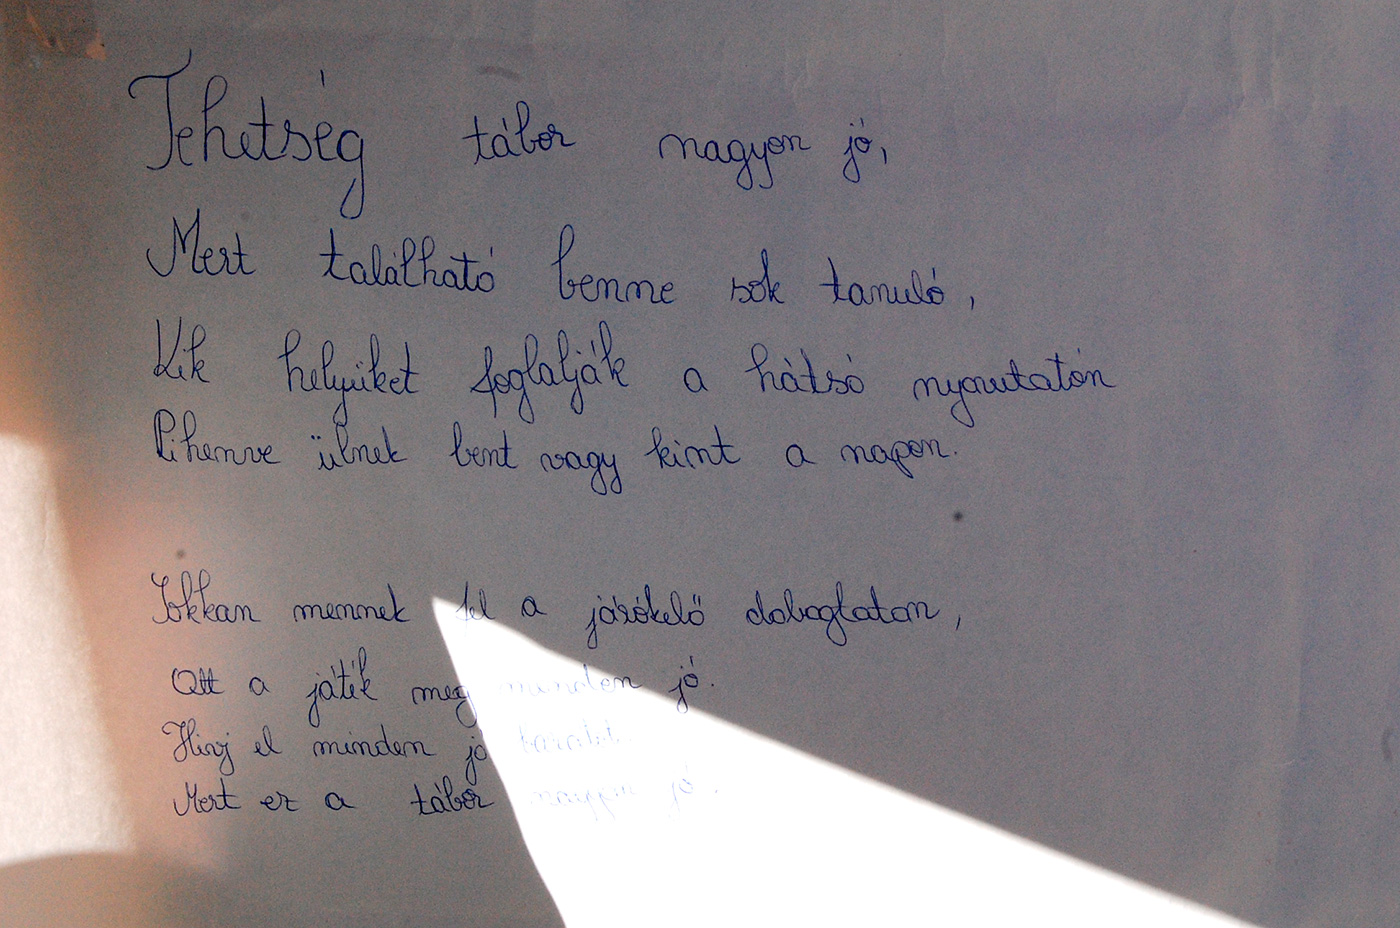 Tehetség tábor nagyon jó,
Mert található benne sok tanuló,
Kik helyüket foglalják a hátsó nyomtatón
Pihenve ülnek bent vagy kint a napon.
Sokkan mennek fel a járókelő dobogtaton,
Ott a játék meg minden jó.
Hívj el minden jó barátot
Mert ez a tábor nagyon jó.